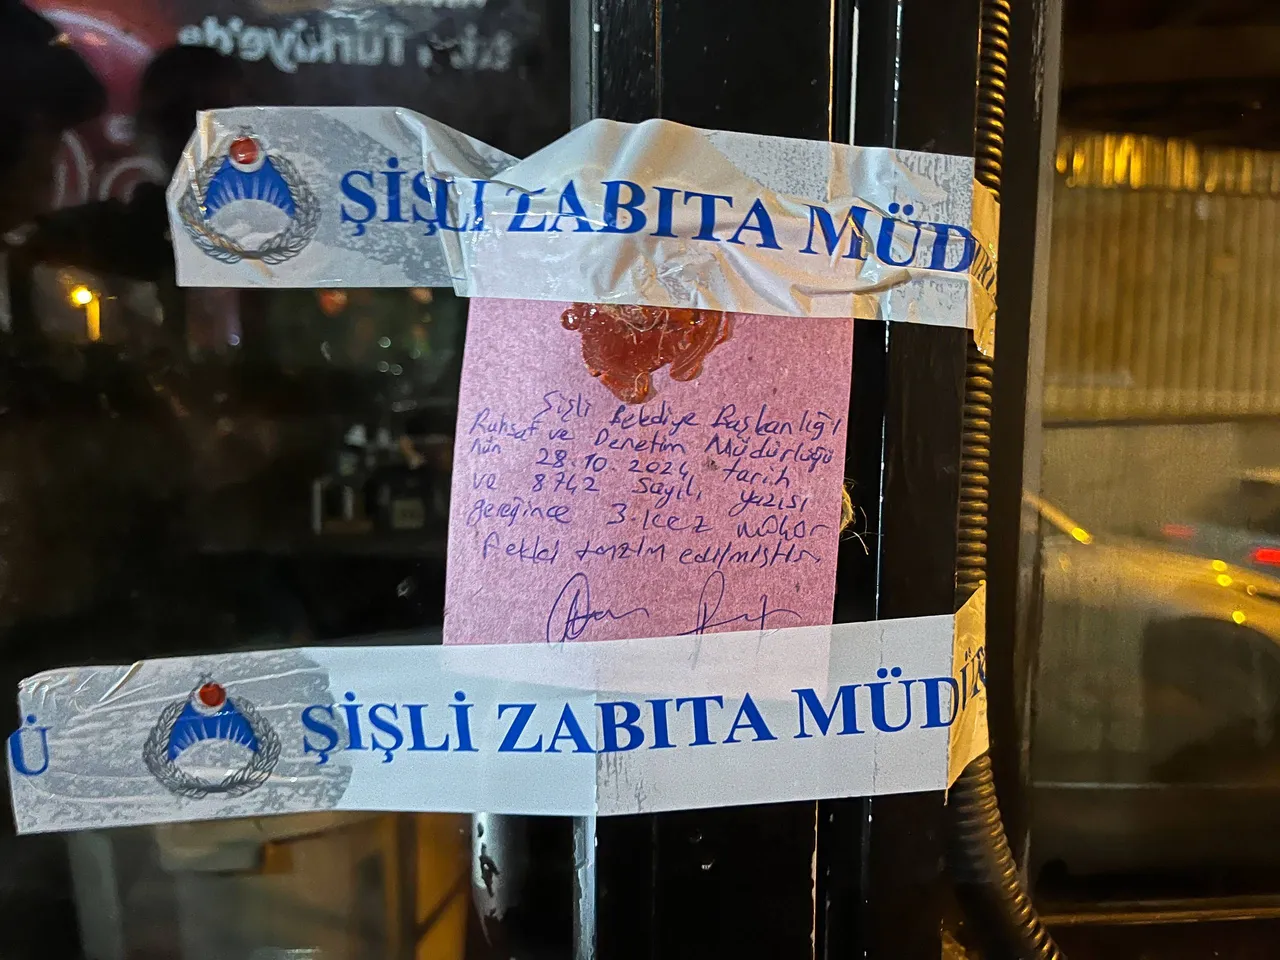 Türkiye'de
ŞİŞLİ ZABITA MÜD
Şişli Belediye Başkanlığı
Ruhsat ve Denetim Müdürlüğü
nün 28.10.2024 tarih
ve 8742 Sayılı yazısı
gereğince 3.kez mühür
Fekki tanzim edilmiştir.
Ü ŞİŞLİ ZABITA MÜDÜR